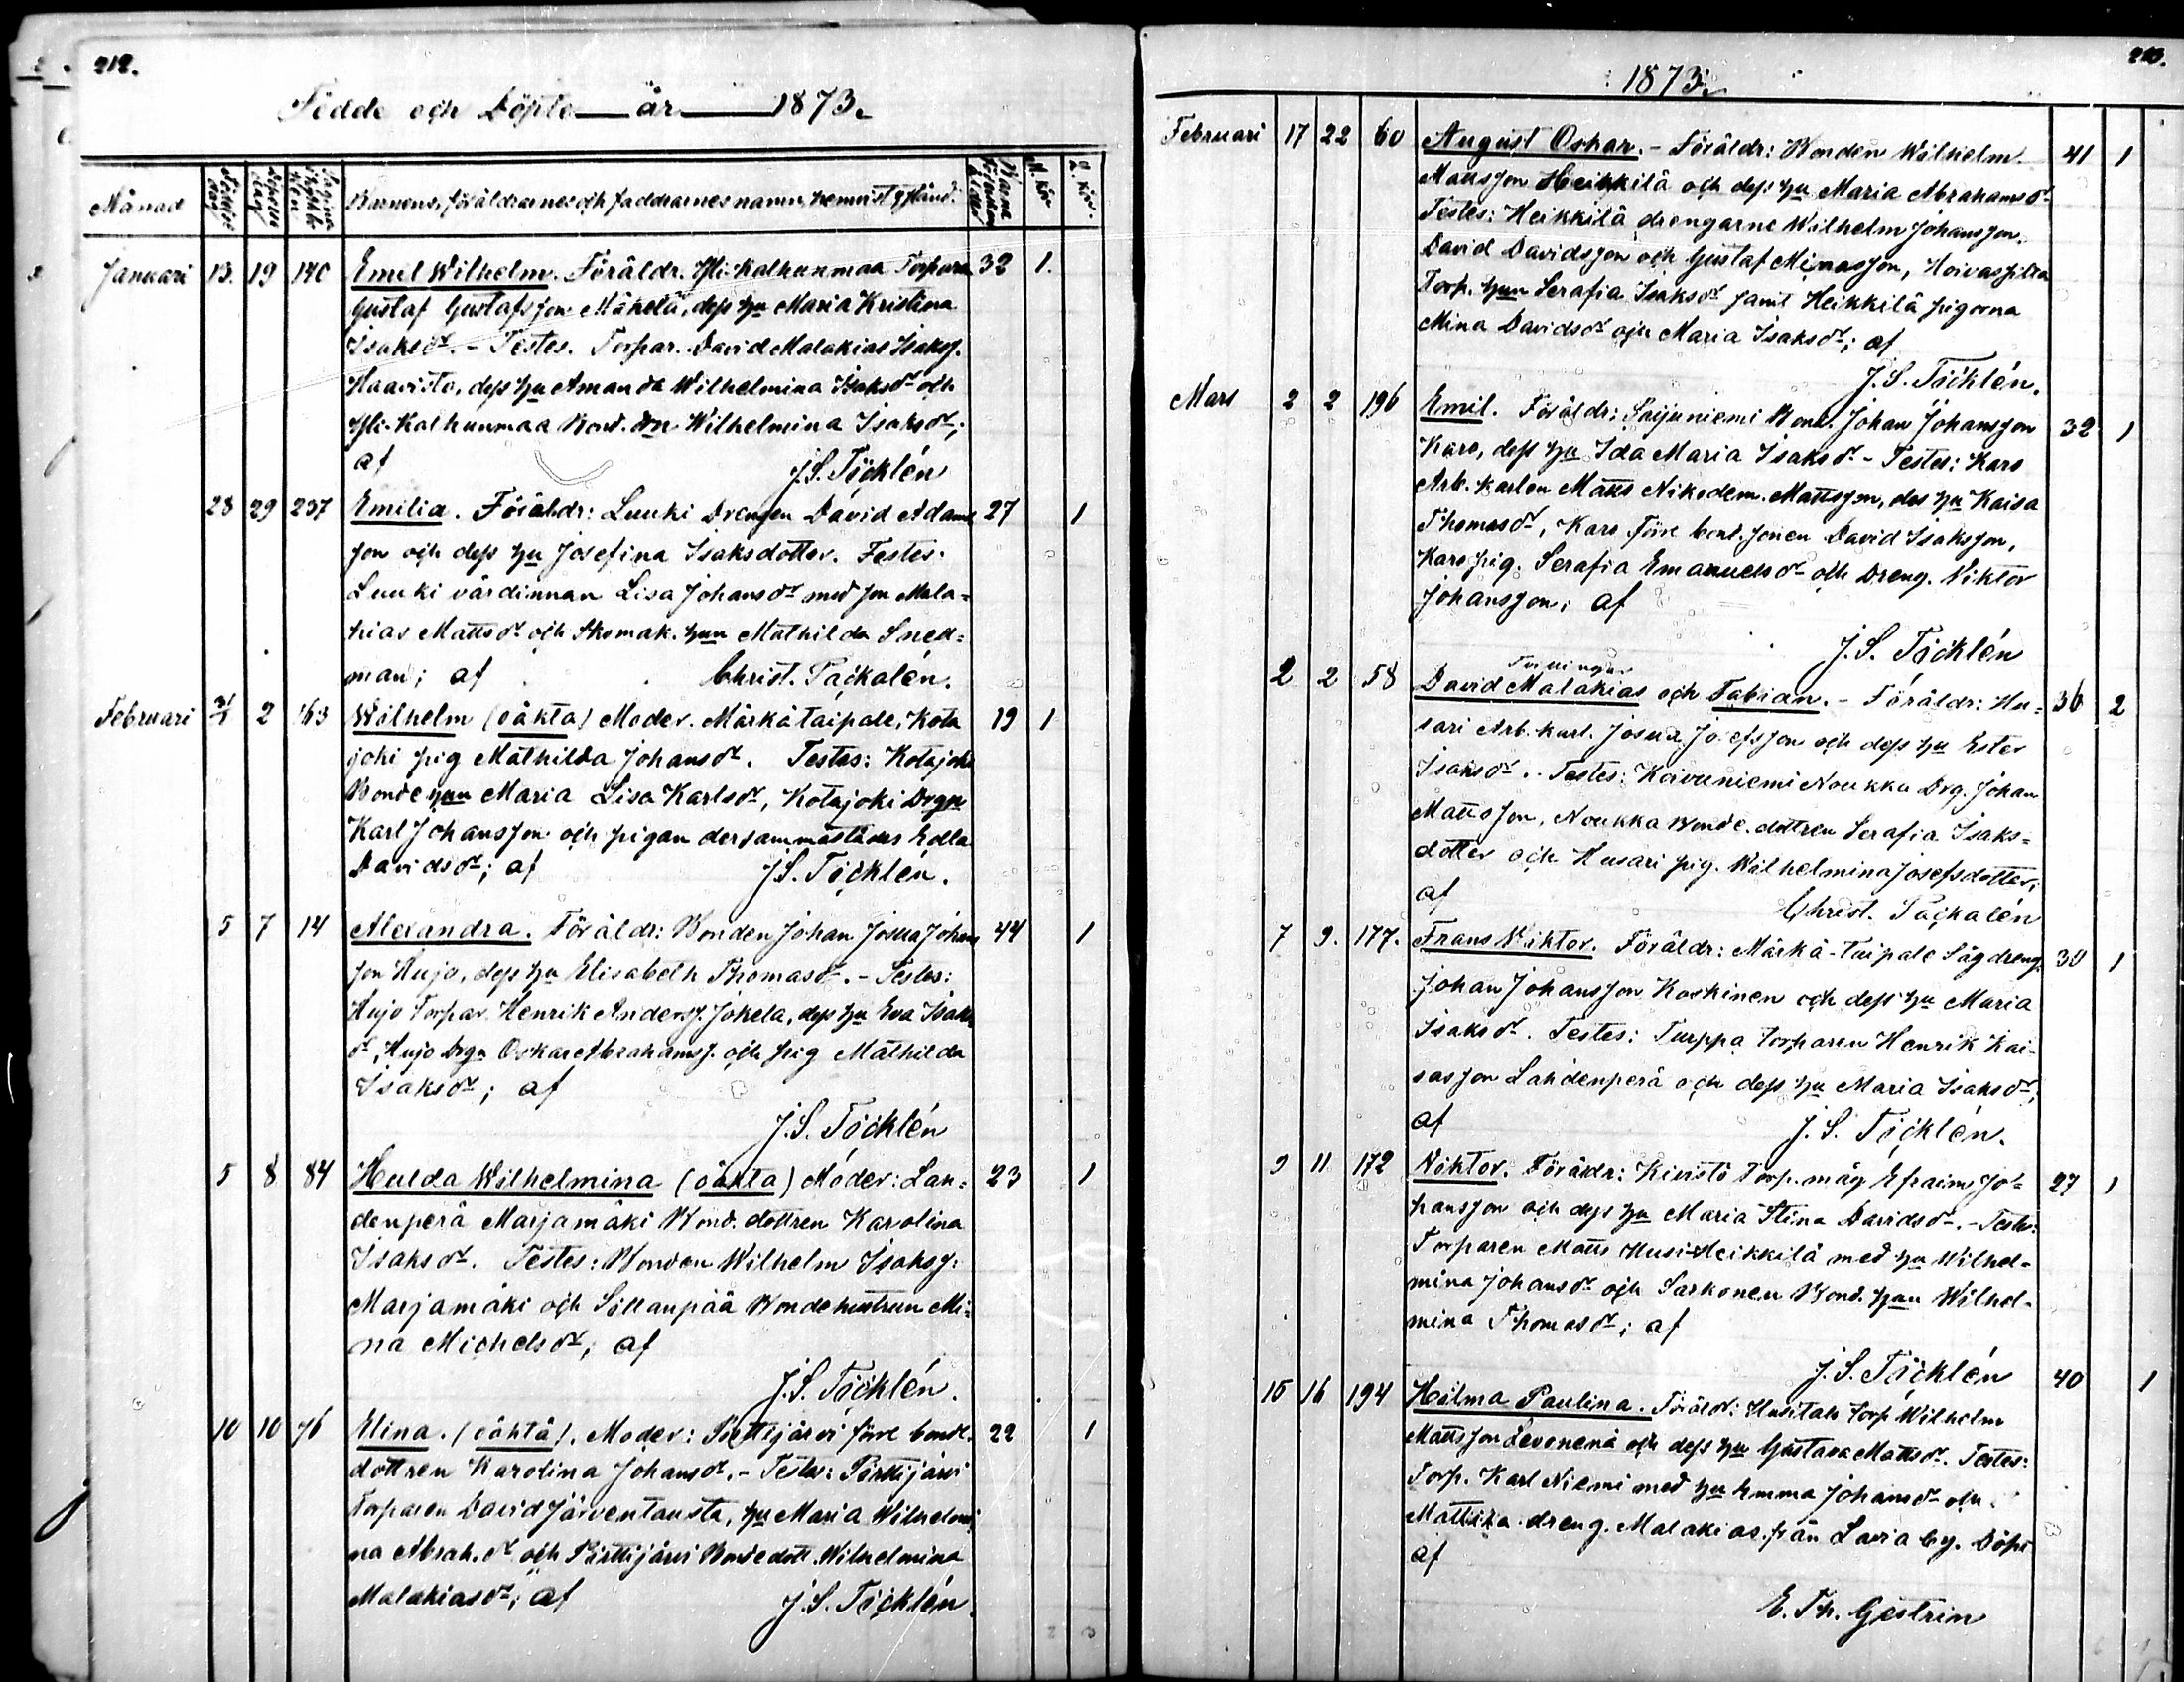 212.
Födde och Döpte år 1873.
Månad
Barnens, föräldrarnes och faddrarnes namn, hemvist, stånd.
Januari 13. 19 140 Emil Wilhelm. Föräldr. Yli-Kalhunmaa Torpare 32 1.
Gustaf Gustafsson Mäkelä, dess hu Maria Kristina
Isaksdr. - Testes. Torpar. David Malakias Isakss.
Haavisto, dess hu Amanda Wilhelmina Isaksdr och
Yli-Kalhunmaa Bond. Wilhelmina Isaksdr;
af J. S. Töcklén
28 29 237 Emilia. Föräldr: Luuki Drengen David Adams 27 1
son och dess hu Josefina Isaksdotter. Testes:
Luuki värdinnan Lisa Johansdr med son Mala-
kias Mattsdr och Skomak. hun Mathilda Sned-
man; af Christ. Packalén.
Februari 31/1 2 163 Wilhelm (oäkta) Moder. Märkätaipale, Kota 19 1
joki pig Mathilda Johansdr. Testes: Kotajoki
Bonde hun Maria Lisa Karlsdr, Kotajoki Drgn
Karl Johansson och pigan dersammastädes Edla
Davidsdr; af J. S. Töcklén.
5 7 14 Alexandra. Föräldr: Bonden Johan Josua Johans 44 1
son Hujo, dess hu Elisabeth Thomasdr. - Testes:
Hujo Torpar. Henrik Anderss. Jokela, dess hu Eva Isaks
dr, Hujo Drgn Oskar Abrahamss. och pig Mathilda
Isaksdr; af
J. S. Töcklén
5 8 84 Hulda Wilhelmina (oäkta) Moder: Lan- 23 1
denperä Marjamäki Bond. dottren Karolina
Isaksdr. Testes: Bonden Wilhelm Isakss.
Marjamäki och Sillanpää Bondehustrun Mi-
na Michelsdr; af
J. S. Töcklén.
10 10 76 Elina. (oäkta). Moder: Pirttijärvi förre bonde. 22 1
dottren Karolina Johansdr. - Testes: Pirttijärvi
Torparen David Järventausta, hu Maria Wilhelmi
na Abrah. dr och Pirttijärvi Bondedott. Wilhelmina
Malakiasdr; af J. S. Töcklén.
1873.
213.
Februari 17 22 60 August Oskar. - Föräldr: Bonden Wilhelm 41 1
Mattsson Heikkilä och dess hu Maria Abrahamsdr
Testes: Heikkilä drengarne Wilhelm Johansson,
David Davidsson och Gustaf
Torp. hun Serafia Isaksdr samt Heikkilä pigorna
Mina Davidsdr och Maria Isaksdr; af
J. S. Töcklén.
Mars 2 2 196 Emil. Föräldr: Saijuniemi Bond. Johan Johansson 32 1
Karo, dess hu Ida Maria Isaksdr - Testes: Karo
Arb. karlen Matts Nikodem. Mattsson, des hu Kaisa
Thomasdr, Karo förre bond. sonen David Isaksson,
Karo pig. Serafia Emanuelsdr och Dreng. Viktor
Johansson; af
J. S. Töcklén
Tvillingar
2 2 58 David Malakias och Fabian. - Föräldr: Hu- 36 2
sari Arb. karl. Josua Josefsson och dess hu Ester
Isaksdr. - Testes: Koivuniemi Noukka Drg. Johan
Mattsson, Noukka Bonde. dottren Serafia Isaks-
dotter och Husari pig. Wilhelmina Josefsdotter;
af Christ. Packalén
7 9. 177. Frans Viktor. Föräldr: Märkä-Taipale Sågdreng. 30 1
Johan Johansson Koskinen och dess hu Maria
Isaksdr. Testes: Turppa Torparen Henrik Kai-
sasson Lahdenperä och dess hu Maria Isaksdr;
af J. S. Töcklén.
9 11 172 Viktor. Föräldr: Kivistö Torp. måg Efraim Jo- 27 1
hansson och dess hu Maria Stina Davidsdr. - Testes:
Torparen Matts Uusi-Heikkilä med hu Wilhel-
mina Johansdr och Sarkonen Bond. hun Wilhel-
mina Thomasdr; af
J. S. Töcklén
15 16 194 Hilma Paulina. Föräld: Uusitalo Torp Wilhelm 40 1
Mattsson Levonena och dess hu Gustava Mattsdr. Testes:
Torp. Karl Niemi med hu Emma Johansdr och
Mattiita dreng. Malakias från Lavia by. Döpt
af
E. Th. Gestrin